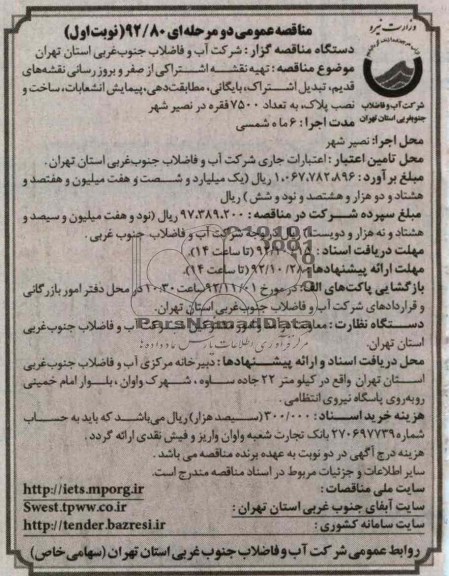 مناقصه عمومی دو مرحله‌ای ۹۲/۸۰ (نوبت اول)
وزارت نیرو
شرکت آب و فاضلاب
جنوب‌غربی استان تهران
دستگاه مناقصه گزار : شرکت آب و فاضلاب جنوب‌غربی استان تهران
موضوع مناقصه : تهیه نقشه اشتراکی از صفر و بروز رسانی نقشه‌های
قدیم، تبدیل اشتراک، بایگانی، مطابقت‌دهی، پیمایش انشعابات، ساخت و
نصب پلاک، به تعداد ۷۵۰۰ فقره در نصیر شهر
مدت اجرا : ۶ ماه شمسی
محل اجرا: نصیر شهر
محل تامین اعتبار : اعتبارات جاری شرکت آب و فاضلاب جنوب‌غربی استان تهران.
مبلغ برآورد : ۱،۰۶۷،۷۸۲،۸۹۶ ریال (یک میلیارد و شصت و هفت میلیون و هفتصد و
هشتاد و دو هزار و هشتصد و نود و شش) ریال
مبلغ سپرده شرکت در مناقصه : ۹۷،۳۸۹،۲۰۰ ریال (نود و هفت میلیون و سیصد و
هشتاد و نه هزار و دویست) ریال در وجه شرکت آب و فاضلاب جنوب غربی .
مهلت دریافت اسناد : ۹۲/۱۰ (تا ساعت ۱۴).
مهلت ارائه پیشنهادها: ۹۲/۱۰/۲۸ (تا ساعت ۱۴).
بازگشایی پاکت‌های الف: در مورخ ۹۲/۱۱/۰۱ ساعت ۱۰:۳۰ در محل دفتر امور بازرگانی
و قراردادهای شرکت آب و فاضلاب جنوب‌غربی استان تهران.
دستگاه نظارت : آب و فاضلاب جنوب‌غربی
استان تهران.
ParsNamadData
مرکز فرآوری اطلاعات پارس نماد داده‌ها
محل دریافت اسناد و ارائه پیشنهادها : دبیرخانه مرکزی آب و فاضلاب جنوب‌غربی
استان تهران واقع در کیلومتر ۲۲ جاده ساوه ، شهرک واوان ، بلوار امام خمینی
روبه‌روی پاسگاه نیروی انتظامی .
هزینه خرید اسناد : ۳۰۰/۰۰۰ (سیصد هزار) ریال می‌باشد که باید به حساب
شماره ۲۷۰۶۹۷۷۳۹ بانک تجارت شعبه واوان واریز و فیش نقدی ارائه گردد .
هزینه درج آگهی در دو نوبت به عهده برنده مناقصه می باشد.
سایر اطلاعات و جزئیات مربوط در اسناد مناقصه مندرج است.
سایت ملی مناقصات : http://iets.mporg.ir
سایت آبفای جنوب غربی استان تهران : Swest.tpww.co.ir
سایت سامانه کشوری : http://tender.bazresi.ir
روابط عمومی شرکت آب و فاضلاب جنوب غربی استان تهران (سهامی خاص)